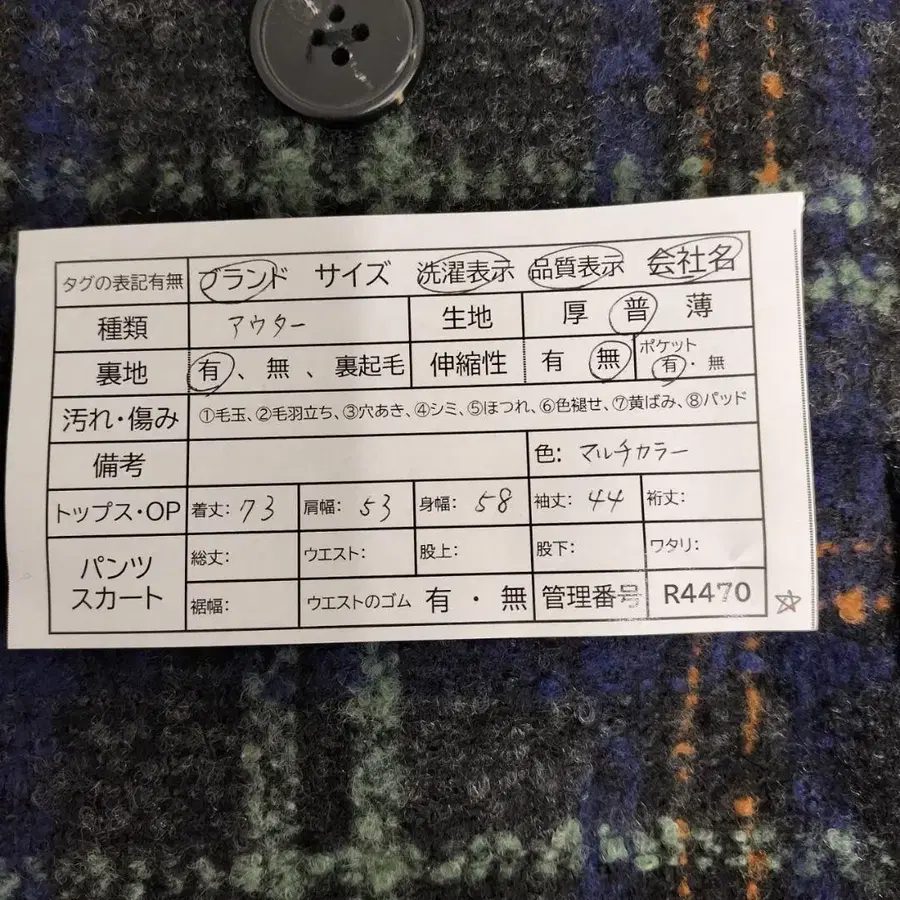 タグの表記有無 ブランド サイズ 洗濯表示 品質表示 会社名
種類 アウター 生地 厚 普 薄
裏地 有、無、裏起毛 伸縮性 有 無 ポケット 有・無
汚れ・傷み ①毛玉、②毛羽立ち、③穴あき、④シミ、⑤ほつれ、⑥色褪せ、⑦黄ばみ、⑧パッド
備考 色: マルチカラー
トップス・OP 着丈: 73 肩幅: 53 身幅: 58 袖丈: 44 裄丈:
パンツ スカート 総丈: ウエスト: 股上: 股下: ワタリ:
裾幅: ウエストのゴム 有・無 管理番号 R4470 ☆